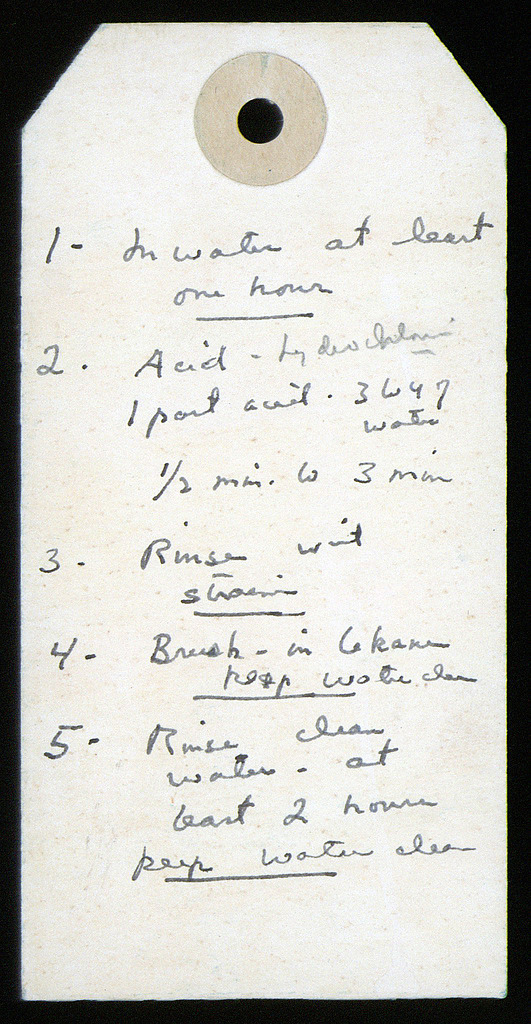 1 - In water at least
one hour
2 . Acid - hydrochloric
1 part acid . 3 to 4 of
water
1/2 min. to 3 min
3 - Rinse with
strainer
4 - Brush - in lekane
keep water clean
5 - Rinse clean
water - at
least 2 hours
keep water clean